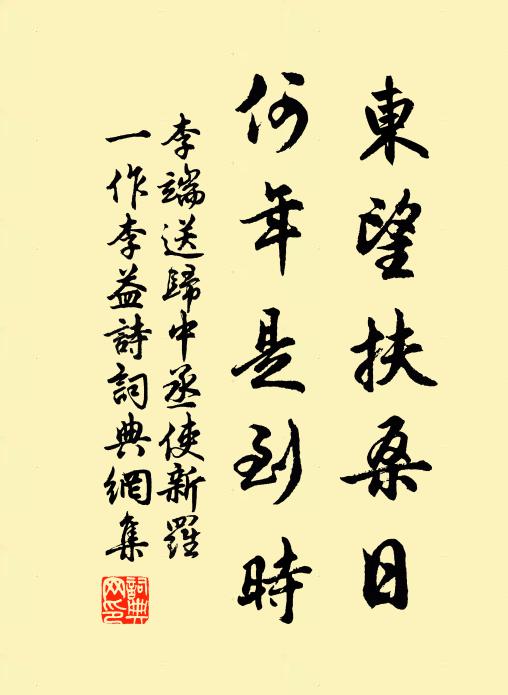 東望扶桑日
何年是到時
李端送歸中丞使新羅
一作李益詩詞典網集
詞典网印